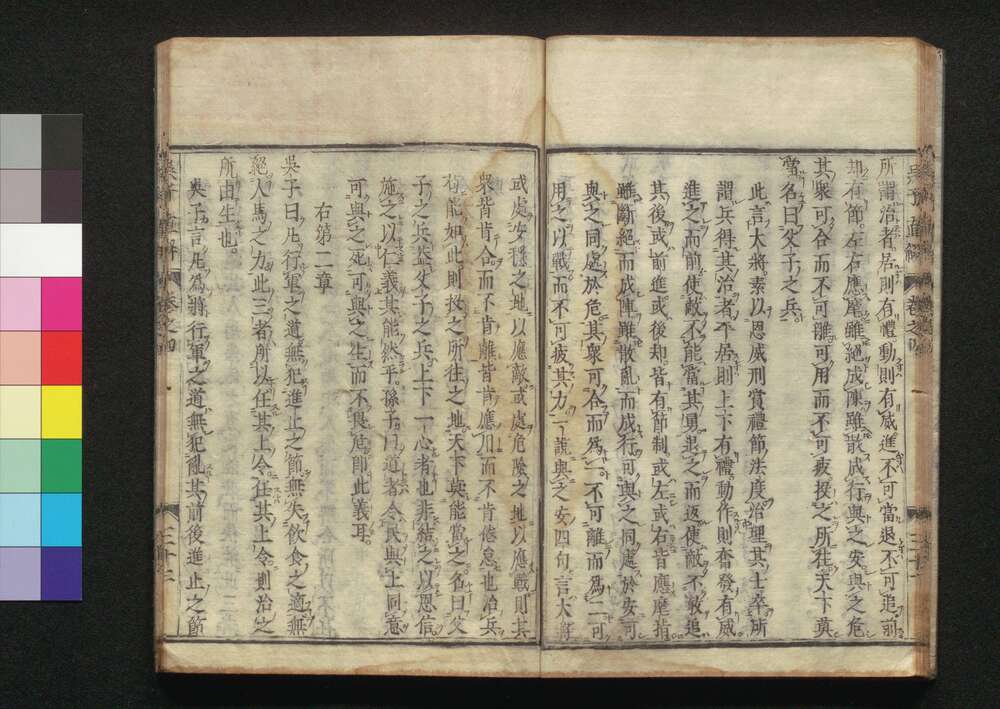 所謂治者居則有禮動則有威進不可當退不可追前
却有節左右應麾雖絕成陳雖散成行與之安與之危
其衆可合而不可離可用而不可疲投之所往天下莫
當名曰父子之兵。
此言大將素以恩威刑賞禮節法度治理其士卒所
謂兵得其治者平居則上下有禮動作則奮發有威
進之而前使敵不能當其勇退之而返使敵不敢追
其後或前進或後却皆有節制或左或右皆應麾指
雖斷絕而成陳雖散亂而成行可與之同處於安可
與之同處於危其衆可合而爲一。不可離而爲二可
用之以戰而不可疲其力一說與之安四句言大將
或處安穩之地以應敵或處危險之地以應戰則其
衆皆肯合。而不肯離皆肯應用而不肯倦怠也治兵
若能如此則投之所往之地天下莫能當之名曰父
子之兵蓋父子之兵上下一心者也非結之以恩信
施之以仁義其能然乎。孫子曰道者令民與上同意
可與之死可與之生而不畏危即此義耳。
右第二章
吳子曰凡行軍之道無犯進止之節無失飲食之適無
絕人馬之力此三者所以任其上令任其上令則治之
所由生也。
吳子言凡爲將行軍之道無犯亂其前後進止之節